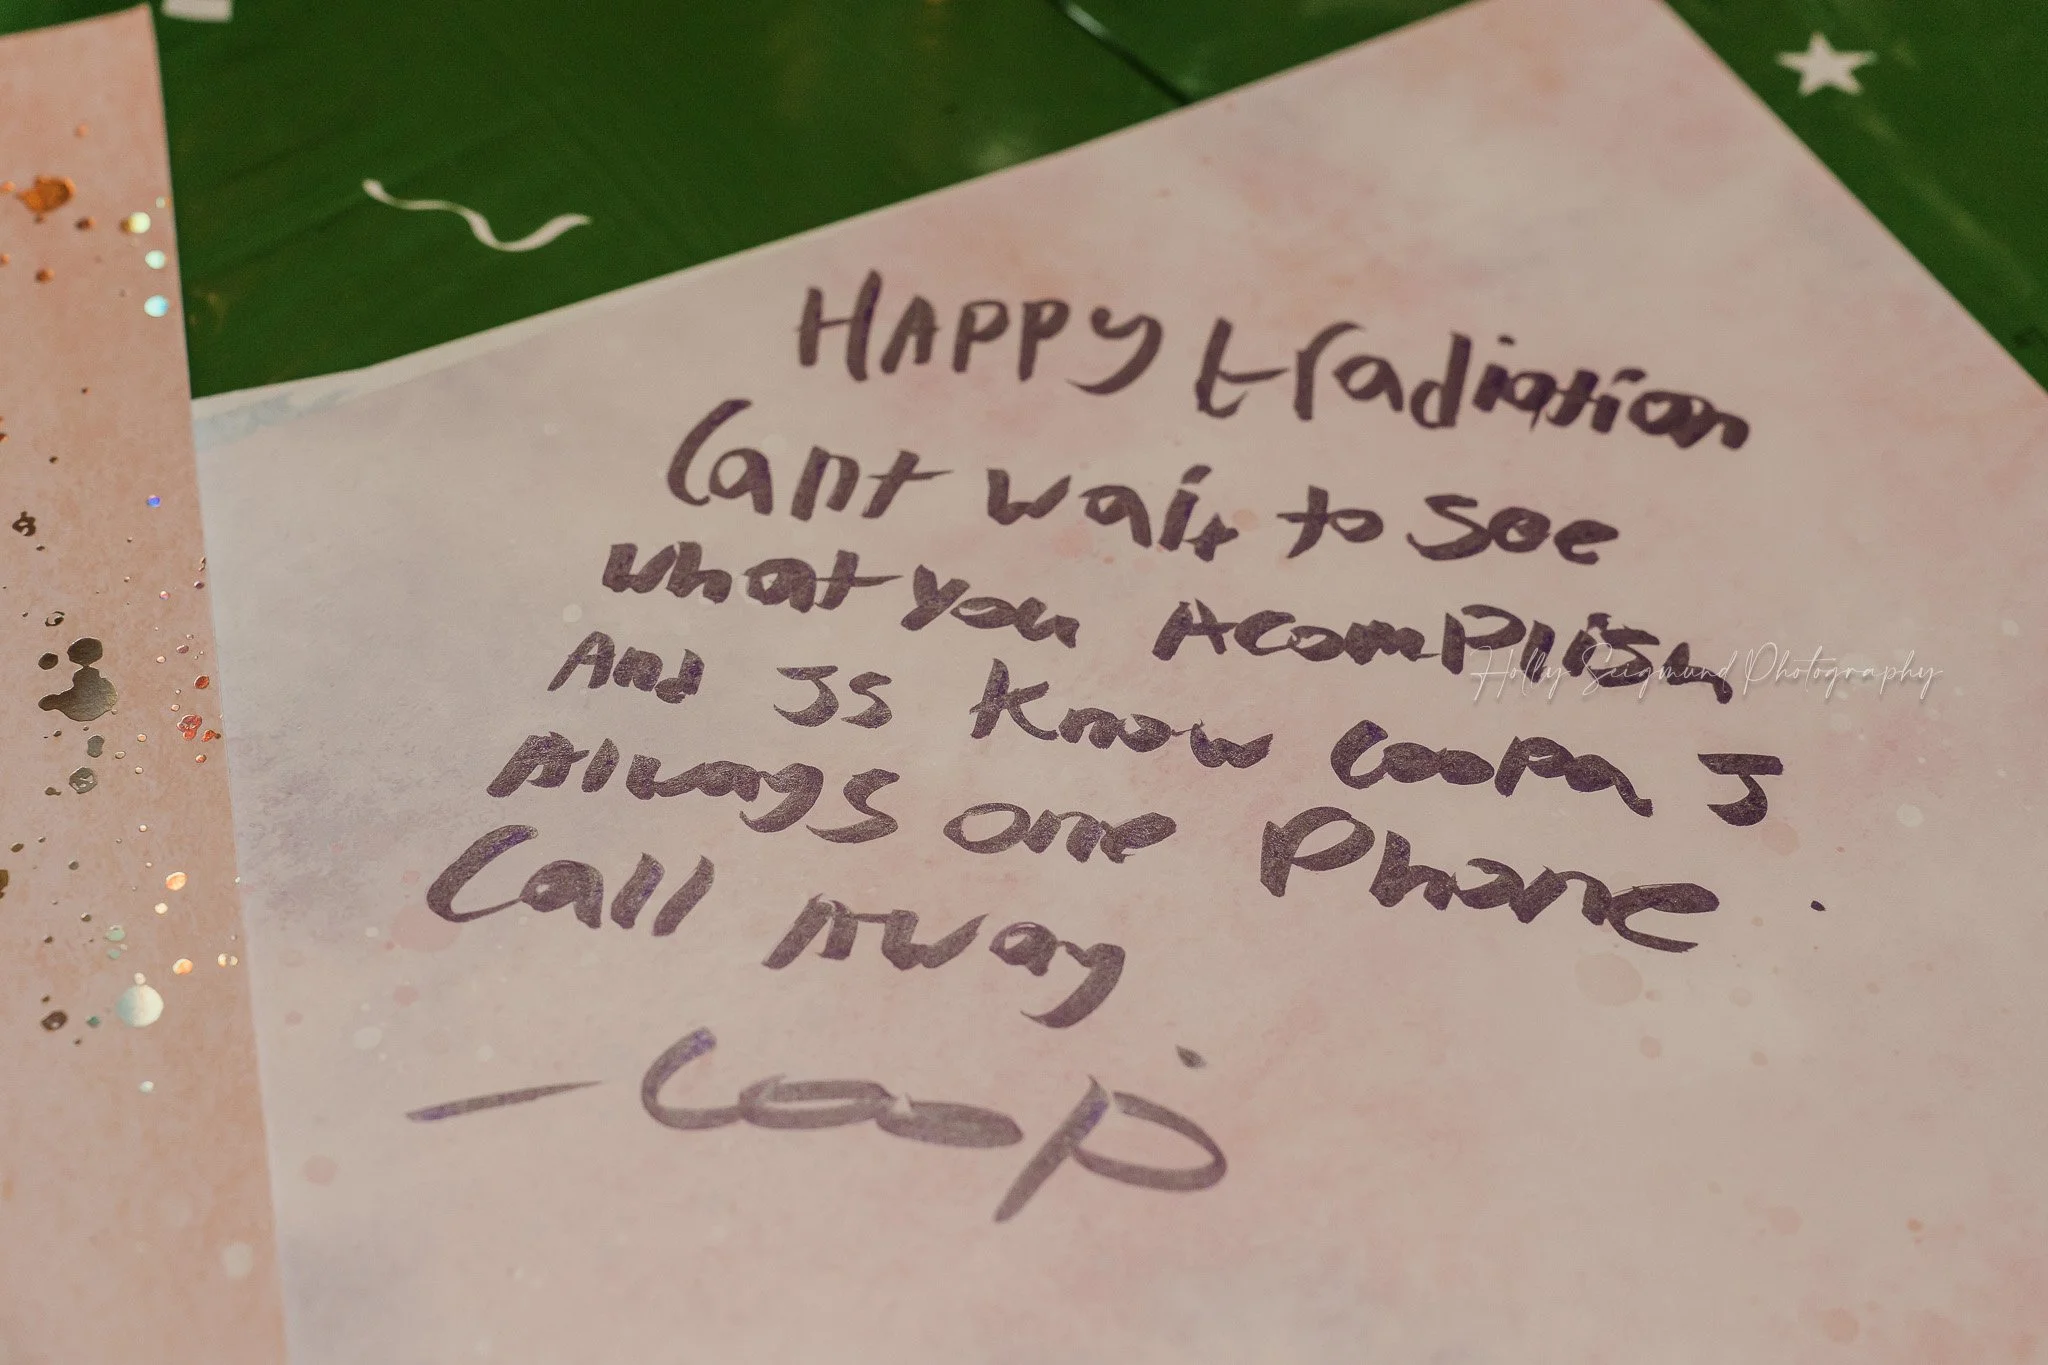 HAPPY tradiation
Cant wait to see
what you Acomplish
And JS Know Coopa J
Always one Phone
Call Away
- Coop
Holly Seigmund Photography